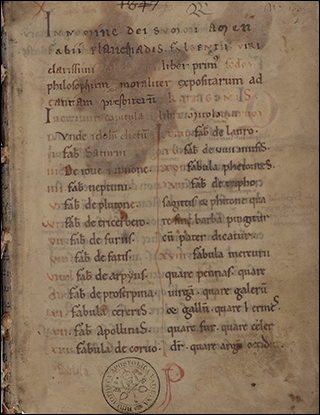 IN NOMINE DEI SUMMI AMEN
FABII PLANCIADIS FULGENTII VIRI
clarissimi liber prim'
philosophum moraliter expositarum ad
presbiterū
Incipiunt capitula libri
Unde idolū dictū
fab Saturni
De ioue & iunone
fab neptuni
fab de plutone
fab de tricerbero
fab de furiis
fab de fatis
fab de arpyis
fab de proserpina
fabula cereris
fab Apollinis
fabula de coruo
fab de lauro.
fab de musis
fabula phetontis
fab de
sagittis & phitone qua
re sine barba pingitur
cū pater dicatur.
fabula mercurii
quare pennas. quare
uirgā. quare galerū
& gallū. quare hermes
quare fur. quare celer
dr. quare argū occidit